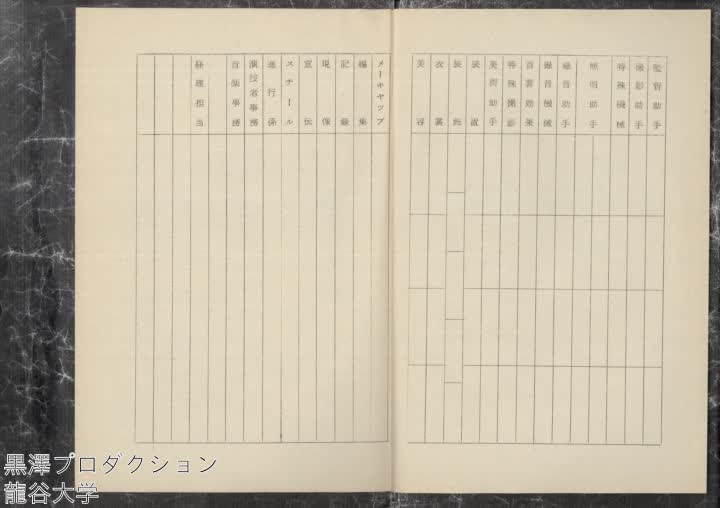 監督助手
撮影助手
特殊機械
照明助手
録音助手
録音機械
音響効果
特殊撮影
美術助手
装置
装飾
衣裳
美容
メーキャップ
編集
記録
現像
宣伝
スチール
進行係
演技者事務
音楽事務
経理担当
黒澤プロダクション
龍谷大学